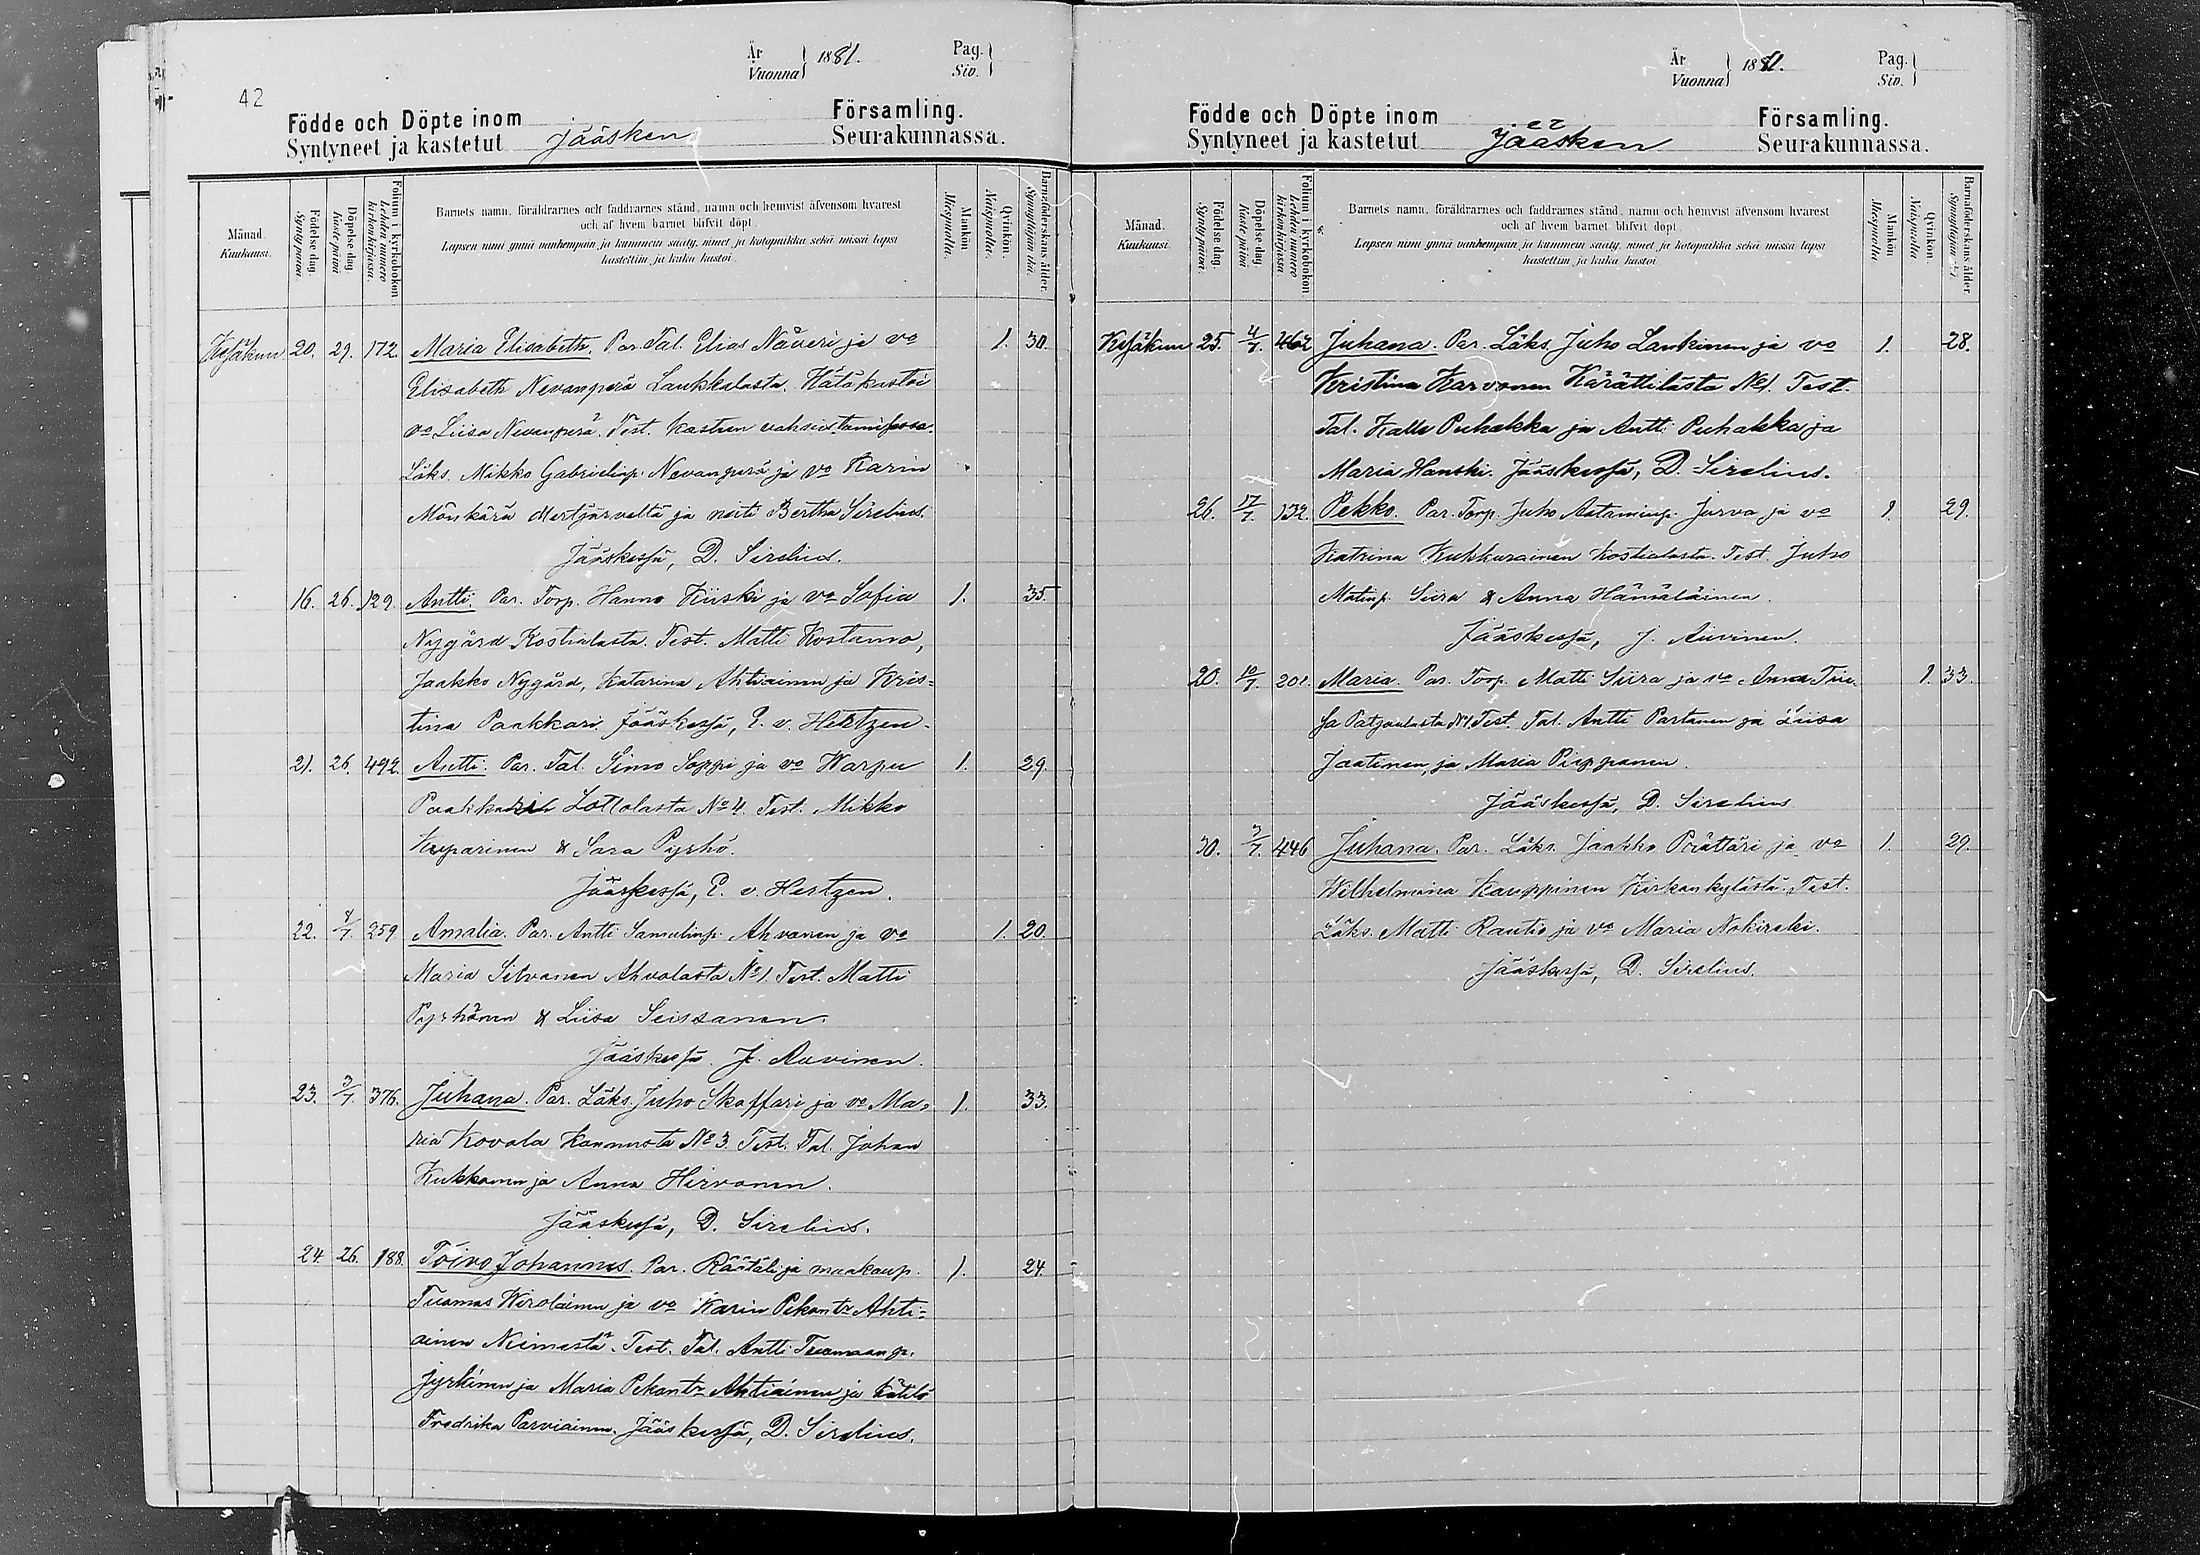 42
År
Vuonna 1881.
Pag.
Siv.
Födde och Döpte inom
Syntyneet ja kastetut Jääsken
Församling.
Seurakunnassa.
Månad.
Kuukausi.
Födelse dag.
Syntypäivä.
Döpelse dag.
Kaste päivä
Folium i kyrkoboken.
Lehden numero
kirkonkirjassa.
Barnets namn, föräldrarnes och faddrarnes stånd, namn och hemvist äfvensom hvarest
och af hvem barnet blifvit döpt.
Lapsen nimi ynnä vanhempain ja kummein sääty, nimet ja kotopaikka sekä missä lapsi
kastettiin ja kuka kastoi.
Mankön.
Miespuolta.
Qvinkön.
Naispuolta.
Barnaföderskans ålder.
Synnyttäjän ikä.
Kesäkuu 20. 29. 172. Maria Elisabeth. Par. Tal. Elias Näveri ja vo 1. 30.
Elisabeth Nevanperä Laukkalasta. Hätäkastoi
vo Liisa Nevanperä. Test. kasteen vahvistamisessa.
Läks. Mikko Gabrielinp. Nevanperä ja vo Karin
Mönkärä Mertjärveltä ja neiti Bertha Sirelius.
Jääskessä, D. Sirelius.
16. 26. 129. Antti. Par. Torp. Hannu Kiiski ja vo Sofia 1. 35.
Nygård Kostialasta. Test. Matti Kostamo,
Jaakko Nygård, Katarina Ahtiainen ja Kris=
tina Paakkari. Jääskessä, E. v. Hertzen.
21. 26. 492. Antti. Par. Tal. Simo Soppi ja vo Warpu 1. 29.
Lottolasta No 4. Test. Mikko
Kuparinen & Sara Pyrhö.
Jääskessä, E. v. Hertzen.
22. 259. Amalia. Par. Antti Samulinp. Ahvonen ja vo 1. 20.
Maria Silvonen Ahvolasta No 1. Test. Matti
Pyrhönen & Liisa Seissanen.
Jääskessä. J. Auvinen.
23. 3/7. 376. Juhana. Par. Läks. Juho Skaffari ja vo Ma= 1. 33.
ria Kovala Kannusta No 3. Test. Tal. Johan
Kukkonen ja Anna Hirvonen.
Jääskessä, D. Sirelius.
24. 26. 188. Toivo Johannes. Par. Räätäli ja maakaup. 1. 24.
Tuomas Wirolainen ja vo Karin Pekantr Ahti=
ainen Niemestä. Test. Tal. Antti Tuomaanp.
Jyrkinen ja Maria Pekantr Ahtiainen ja kätilö
Fredrika Parviainen. Jääskessä, D. Sirelius.
År
Vuonna 1881.
Pag.
Siv.
Födde och Döpte inom
Syntyneet ja kastetut Jääsken
Församling.
Seurakunnassa.
Månad.
Kuukausi.
Födelse dag.
Syntypäivä.
Döpelse dag.
Kaste päivä
Folium i kyrkoboken.
Lehden numero
kirkonkirjassa.
Barnets namn, föräldrarnes och faddrarnes stånd, namn och hemvist äfvensom hvarest
och af hvem barnet blifvit döpt.
Lapsen nimi ynnä vanhempain ja kummein sääty, nimet ja kotopaikka sekä missä lapsi
kastettiin ja kuka kastoi.
Mankön.
Miespuolta.
Qvinkön.
Naispuolta.
Barnaföderskans ålder.
Synnyttäjän ikä.
Kesäkuu 25. 4/7. 462 Juhana. Par. Läks. Juho Lankinen ja vo 1. 28.
Kristina Karvonen Kärättilästä No 1. Test.
Tal. Kalle Puhakka ja Antti Puhakka ja
Maria Hanski. Jääskessä, D. Sirelius.
26. 17/7. 132. Pekko. Par. Torp. Juho Aataminp. Jurva ja vo 1. 29.
Katrina Kukkurainen Kostialasta. Test. Juho
Matinp. Siira & Anna Hämäläinen.
Jääskessä, J. Auvinen.
20. 10/7. 201. Maria. Par. Torp. Matti Siira ja vo Anna 1. 33.
No 1 Test. Tal. Antti Partanen ja Liisa
Jaatinen, ja Maria Pimppanen.
Jääskessä, D. Sirelius
30. 3/7. 446 Juhana. Par. Läks. Jaakko Prättäri ja vo 1. 29.
Wilhelmina Kauppinen Kirkonkylästä. Test.
Läks. Matti Rautio ja vo Maria Nokireki.
Jääskessä, D. Sirelius.